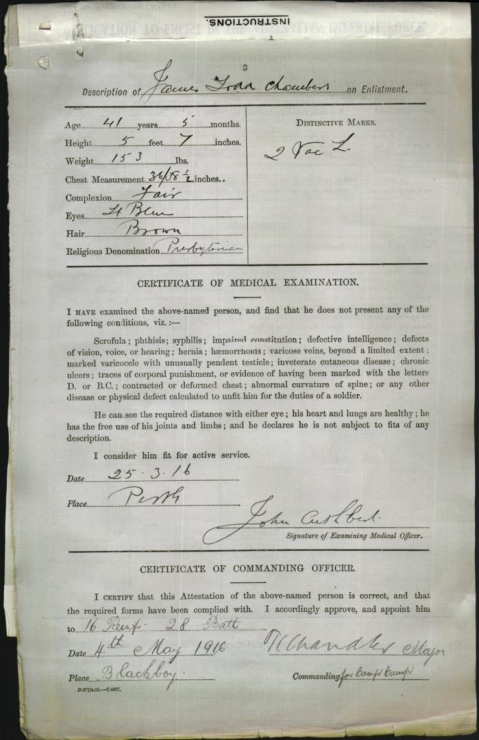 INSTRUCTIONS.
3
Description of James Todd Chambers on Enlistment.
Age 41 years 5 months.
Height 5 feet 7 inches.
Weight 153 lbs.
Chest Measurement 36/38½ inches..
Complexion Fair
Eyes Lt Blue
Hair Brown
Religious Denomination Presbyterian
DISTINCTIVE MARKS.
2 Vac L.
CERTIFICATE OF MEDICAL EXAMINATION.
I HAVE examined the above-named person, and find that he does not present any of the
following conditions, viz. :—
Scrofula; phthisis; syphilis; impaired constitution; defective intelligence; defects
of vision, voice, or hearing; hernia; hæmorrhoids; varicose veins, beyond a limited extent;
marked varicocele with unusually pendent testicle; inveterate cutaneous disease; chronic
ulcers; traces of corporal punishment, or evidence of having been marked with the letters
D. or B.C.; contracted or deformed chest; abnormal curvature of spine; or any other
disease or physical defect calculated to unfit him for the duties of a soldier.
He can see the required distance with either eye; his heart and lungs are healthy; he
has the free use of his joints and limbs; and he declares he is not subject to fits of any
description.
I consider him fit for active service.
Date 25-3-16
Place Perth
John Cuthbert
Signature of Examining Medical Officer.
CERTIFICATE OF COMMANDING OFFICER.
I CERTIFY that this Attestation of the above-named person is correct, and that
the required forms have been complied with. I accordingly approve, and appoint him
to 16 Reinf. 28 Batt
Date 4th May 1916
Chandler Major
Place Blackboy.
Commanding for Camp Camp